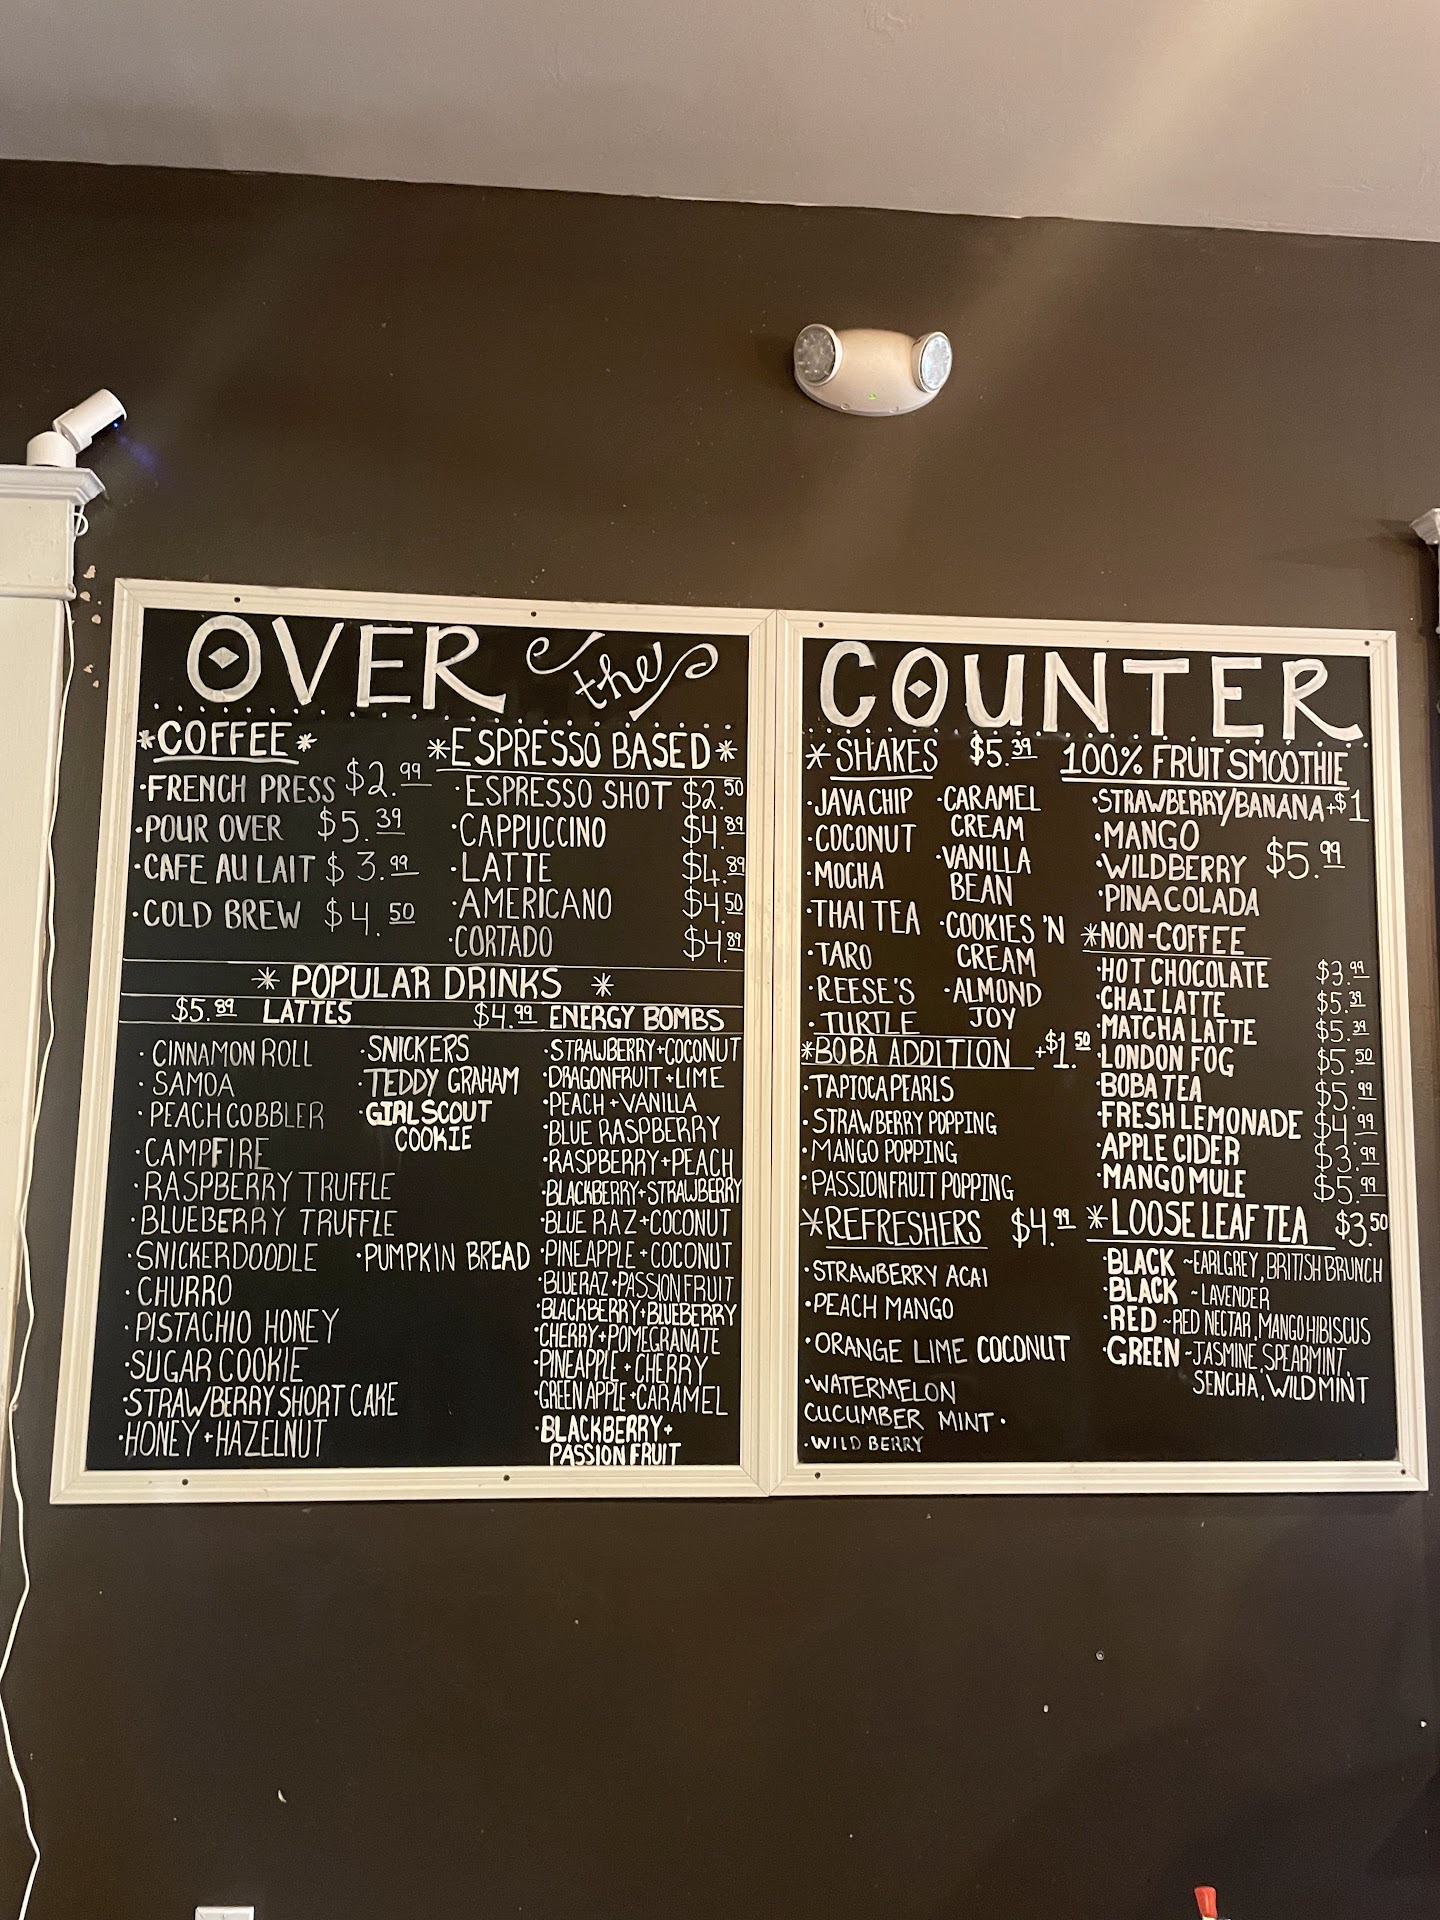 OVER the COUNTER
*COFFEE*
·FRENCH PRESS $2.99
·POUR OVER $5.39
·CAFE AU LAIT $3.99
·COLD BREW $4.50
*ESPRESSO BASED*
·ESPRESSO SHOT $2.50
·CAPPUCCINO $4.89
·LATTE $4.89
·AMERICANO $4.50
·CORTADO $4.89
* POPULAR DRINKS *
$5.89 LATTES
· CINNAMON ROLL
· SAMOA
· PEACH COBBLER
· CAMPFIRE
· RASPBERRY TRUFFLE
· BLUEBERRY TRUFFLE
· SNICKERDOODLE
· CHURRO
· PISTACHIO HONEY
· SUGAR COOKIE
· STRAWBERRY SHORT CAKE
· HONEY + HAZELNUT
· SNICKERS
· TEDDY GRAHAM
· GIRL SCOUT
COOKIE
· PUMPKIN BREAD
$4.99 ENERGY BOMBS
· STRAWBERRY + COCONUT
· DRAGONFRUIT + LIME
· PEACH + VANILLA
· BLUE RASPBERRY
· RASPBERRY + PEACH
· BLACKBERRY + STRAWBERRY
· BLUE RAZ + COCONUT
· PINEAPPLE + COCONUT
· BLUERAZ + PASSIONFRUIT
· BLACKBERRY + BLUEBERRY
· CHERRY + POMEGRANATE
· PINEAPPLE + CHERRY
· GREEN APPLE + CARAMEL
· BLACKBERRY +
PASSION FRUIT
* SHAKES $5.39
· JAVA CHIP
· COCONUT
· MOCHA
· THAI TEA
· TARO
· REESE'S
· TURTLE
· CARAMEL
CREAM
· VANILLA
BEAN
· COOKIES 'N
CREAM
· ALMOND
JOY
*BOBA ADDITION +$1.50
· TAPIOCA PEARLS
· STRAWBERRY POPPING
· MANGO POPPING
· PASSIONFRUIT POPPING
*REFRESHERS $4.99
· STRAWBERRY ACAI
· PEACH MANGO
· ORANGE LIME COCONUT
· WATERMELON
CUCUMBER MINT ·
· WILD BERRY
100% FRUIT SMOOTHIE
· STRAWBERRY/BANANA +$1
· MANGO
· WILDBERRY $5.99
· PINA COLADA
*NON-COFFEE
· HOT CHOCOLATE $3.99
· CHAI LATTE $5.39
· MATCHA LATTE $5.39
· LONDON FOG $5.50
· BOBA TEA $5.99
· FRESH LEMONADE $4.99
· APPLE CIDER $3.99
· MANGO MULE $5.99
*LOOSE LEAF TEA $3.50
· BLACK ~EARL GREY, BRITISH BRUNCH
· BLACK ~LAVENDER
· RED ~RED NECTAR, MANGO HIBISCUS
· GREEN ~JASMINE, SPEARMINT,
SENCHA, WILD MINT